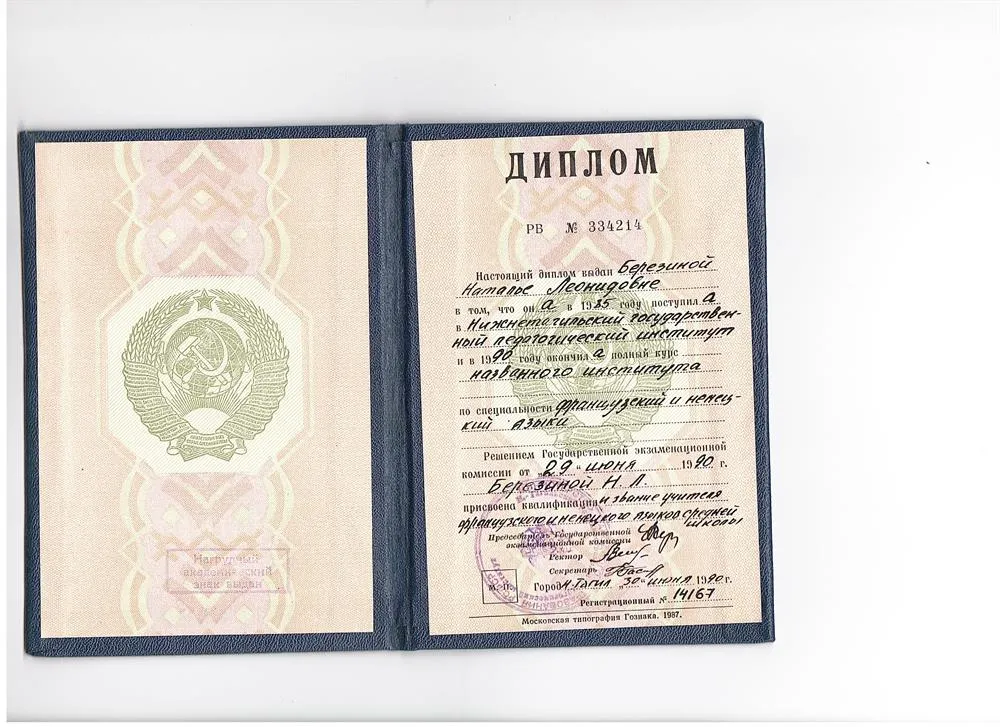 Нагрудный
академический
знак выдан
ДИПЛОМ
РВ № 334214
Настоящий диплом выдан Березиной
Наталье Леонидовне
в том, что он а в 1985 году поступил а
в Нижнетагильский государствен-
ный педагогический институт
и в 1990 году окончил а полный курс
названного института
по специальности французский и немец-
кий языки
Решением Государственной экзаменационной
комиссии от „29" июня 1990 г.
Березиной Н. Л.
присвоена квалификация и звание учителя
французского и немецкого языков средней
школы
Председатель Государственной
экзаменационной комиссии
Ректор
Секретарь
М. П. Город Н-Тагил „30" июня 1990 г.
Регистрационный № 14167
Московская типография Гознака. 1987.